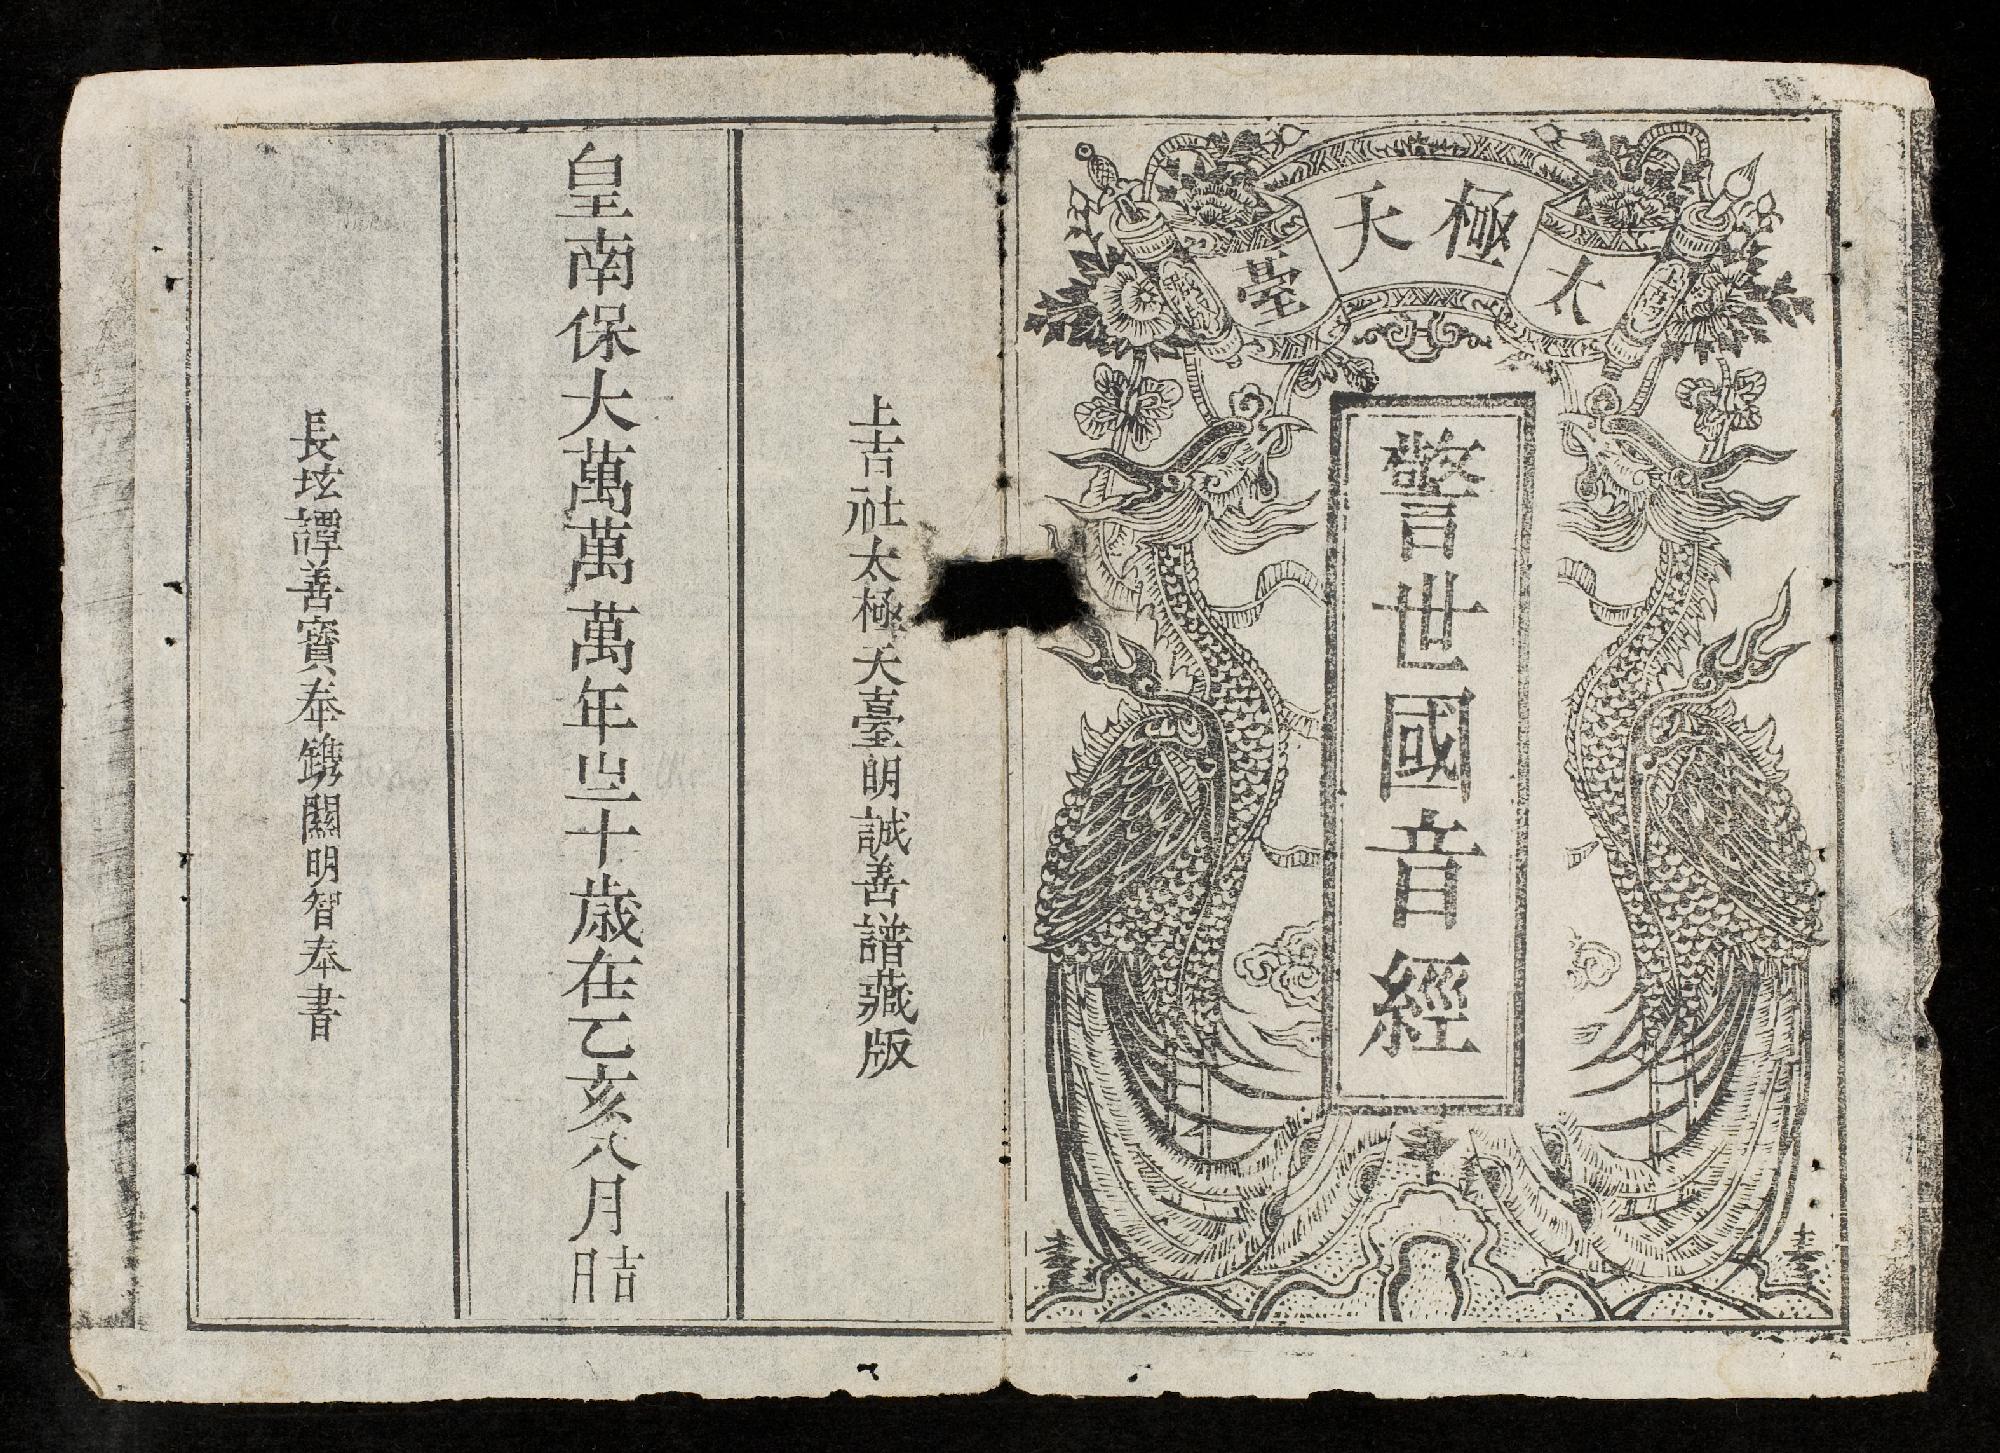 太極天臺
警世國音經
上吉社太極天臺明誠善譜藏版
皇南保大萬萬萬年之十歲在乙亥八月吉日
長坹譚善寶奉鐫關明智奉書